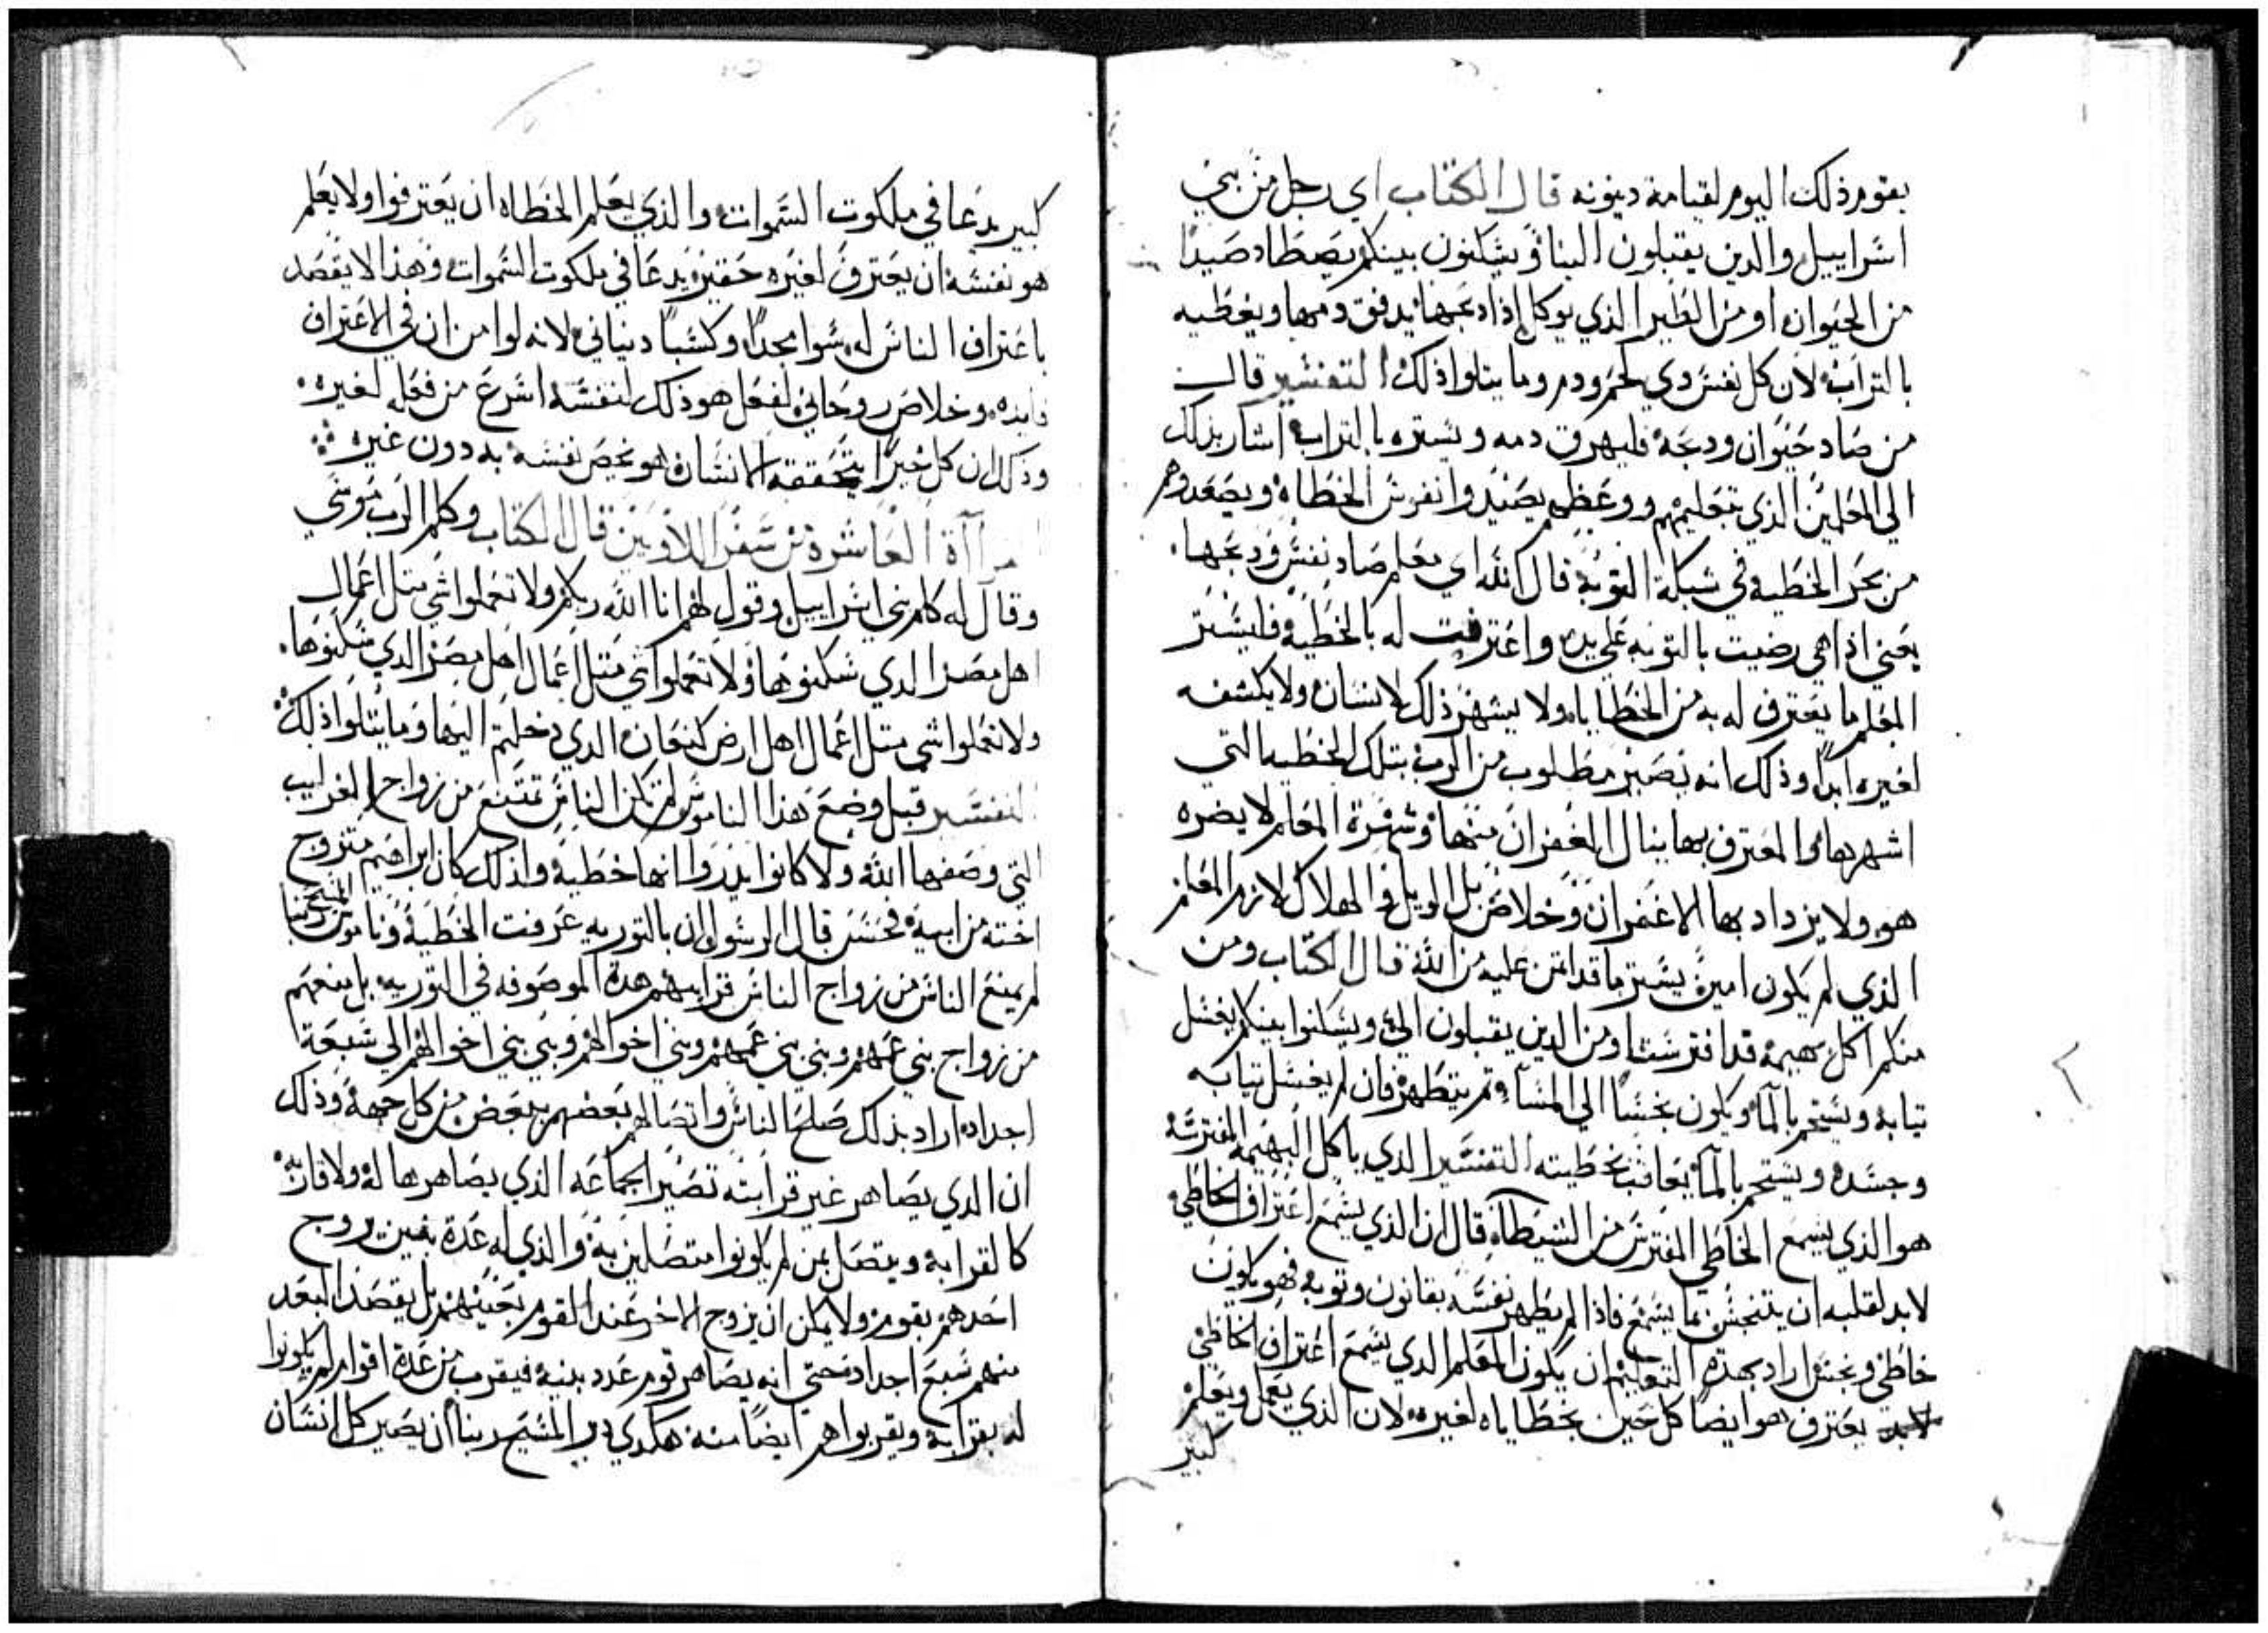 بقوم ذلك اليوم لقيامة دينونه قال الكتاب اي رجل من بني
اسراييل والدين يقتبلون الينا ويسكنون بينكم يصطاد صيدا
من الحيوان او من الطير الذي يوكل إذا دبحها يدفق دمها ويغطيه
بالتراب لان كل نفس دي لحم ودم وما يتلوا ذلك التفسير قال
من صاد حيوان ودبحه فليهرق دمه ويستره بالتراب اشار بذلك
الي المعلمين الذي بتعليمهم ووعظهم يصيدوا نفوس الخطاه ويصعدوهم
من بحر الخطيه في شبكة التوبة قال الله اي معلم صاد نفس ودبحها
يعني اذا هي رضيت بالتوبه علي يده واعترفت له بالخطية فليستر
المعلم ما يعترف له به من الخطاياه ولا يشهر ذلك لانسان ولا يكشفه
لغيره ابدا وذلك انه يصير مطلوب من الرب بتلك الخطيه التي
اشهرها والمعترف بها ينال الغفران منها وشهرة المعلم لا يضره
هو ولا يزداد بها الا غفران وخلاص بل الويل والهلاك لازم المعلم
الذي لم يكون امين يستر ما قد اتمن عليه من الله قال الكتاب ومن
منكم اكل بهيمه قد افترست او من الدين يقبلون الي ويسكنوا بينكم يغسل
تيابه ويستحم بالما ويكون نجسا الي المسا تم يتطهر فان لم يغسل تيابه
وجسده ويستحم بالما يعاقب بخطيته التفسير الدي ياكل البهيمه المفترسه
هو الذي يسمع الخاطي المفترس من الشيطان قال ان الذي يسمع اعتراف الخاطي
لابد لقلبه ان يتنجس بما يسمع فاذا لم يطهر نفسه بقانون وتوبه فهو يكون
خاطي ونجس اراد بهذه التعليم ان يكون المعلم الدي يسمع اعتراف الخاطي
لابد يعترف هو ايضا كل حين بخطاياه لغيره لان الذي يعمل ويعلم
كبير
كبير يدعا في ملكوت السموات والذي يعلم الخطاه ان يعترفوا ولا يعلم
هو نفسه ان يعترف لغيره حقير يدعا في ملكوت السموات وهذا لا يقصد
باعتراف الناس له سوا مجدا وكسبا دنياني لانه لوا من ان في الاعتراف
فايده وخلاص روحاني لفعل هو ذلك لنفسه اسرع من فعله لغيره
وذلك ان كل خيرا يتحققه الانسان هو يخص نفسه به دون غيره
العاشرة من سفر اللاويين قال الكتاب وكلم الرب موسي
وقال له كلم بني اسراييل وقول لهم انا الله ربكم ولا تعملوا شي متل اعمال
اهل مصر الدي سكنوها ولا تعملوا شي متل اعمال اهل مصر الدي سكنوها
ولا تعملوا شي متل اعمال اهل ارض كنعان الدي دخلتم اليها وما يتلوا ذلك
التفسير قبل وضع هذا الناموس لم تكن الناس تمتنع من زواج القرايب
التي وصفها الله ولا كانوا يدروا انها خطية ولذلك كان ابراهيم متزوج
اخته من ابيه فحسن قال الرسول ان بالتوريه عرفت الخطية وناموس المسيح ربنا
لم يمنع الناس من زواج الناس قرايبهم هدة الموصوفه في التوريه بل منعهم
من زواج بني عمهم وبني بني عمهم وبني اخوالهم وبني بني اخوالهم الي سبعة
اجداد اراد بذلك صلح الناس واتصالهم بعضهم ببعض من كل جهة وذلك
ان الدي يصاهر غير قرابته تصير الجماعه الذي يصاهرها له ولاقاربه
كالقرابه ويتصل بمن لم يكونوا متصلين به والذي له عدة بنين يزوج
احدهم بقوم ولا يمكن ان يزوج الاخر عند القوم بعينهم بل يقصد البعد
منهم سبع اجداد حتى انه يصاهر قوم عدد بنيه فيقرب من عدة اقوام لم يكونوا
له بقرابه ويقربوا هم ايضا منه هكدي دبر المسيح ربنا ان يصير كل انسان